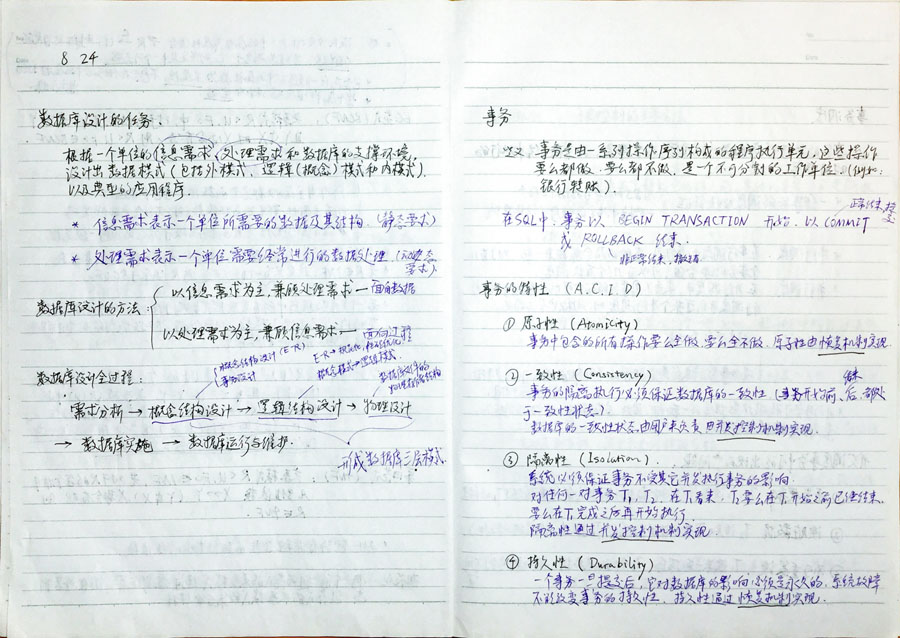 8 24
数据库设计的任务
根据一个单位的信息需求、处理需求和数据库的支撑环境,
设计出数据模式(包括外模式、逻辑(概念)模式和内模式)
以及典型的应用程序.
* 信息需求表示一个单位所需要的数据及其结构.(静态需求)
* 处理需求表示一个单位需要经常进行的数据处理(动态需求)
数据库设计的方法
以信息需求为主,兼顾处理需求—面向数据
以处理需求为主,兼顾信息需求—面向过程
概念结构设计(E-R)
事务设计
概念模式→逻辑模式
数据库设计全过程:
需求分析→概念结构设计→逻辑结构设计→物理设计
→数据库实施→数据库运行与维护.
形成数据库三层模式
事务
定义 事务是由一系列操作序列构成的程序执行单元,这些操作
要么都做,要么都不做,是一个不可分割的工作单位.(例如:
银行转账).
正常结束,提交
在SQL中,事务以 BEGIN TRANSACTION 开始,以 COMMIT
或 ROLLBACK 结束.
非正常结束,撤销
事务的特性(A.C.I.D)
① 原子性(Atomicity)
事务中包含的所有操作要么全做,要么全不做.原子性由恢复机制实现
② 一致性(Consistency)
事务的隔离执行必须保证数据库的一致性(事务开始前、结束后,都处
于一致性状态).
数据库的一致性状态由用户来负责,且并发控制机制实现.
③ 隔离性(Isolation).
系统必须保证事务不受其它并发执行事务的影响
对任何一对事务T1,T2,在T1看来,T2要么在T1开始之前已经结束,
要么在T1完成之后再开始执行.
隔离性通过并发控制机制实现
④ 持久性(Durability)
一个事务一旦提交后,它对数据库的影响必须是永久的,系统故障
不能改变事务的持久性.持久性通过恢复机制实现.